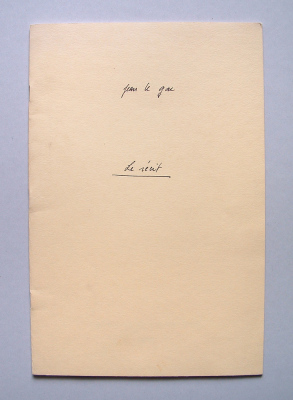 jean le gac
Le récit